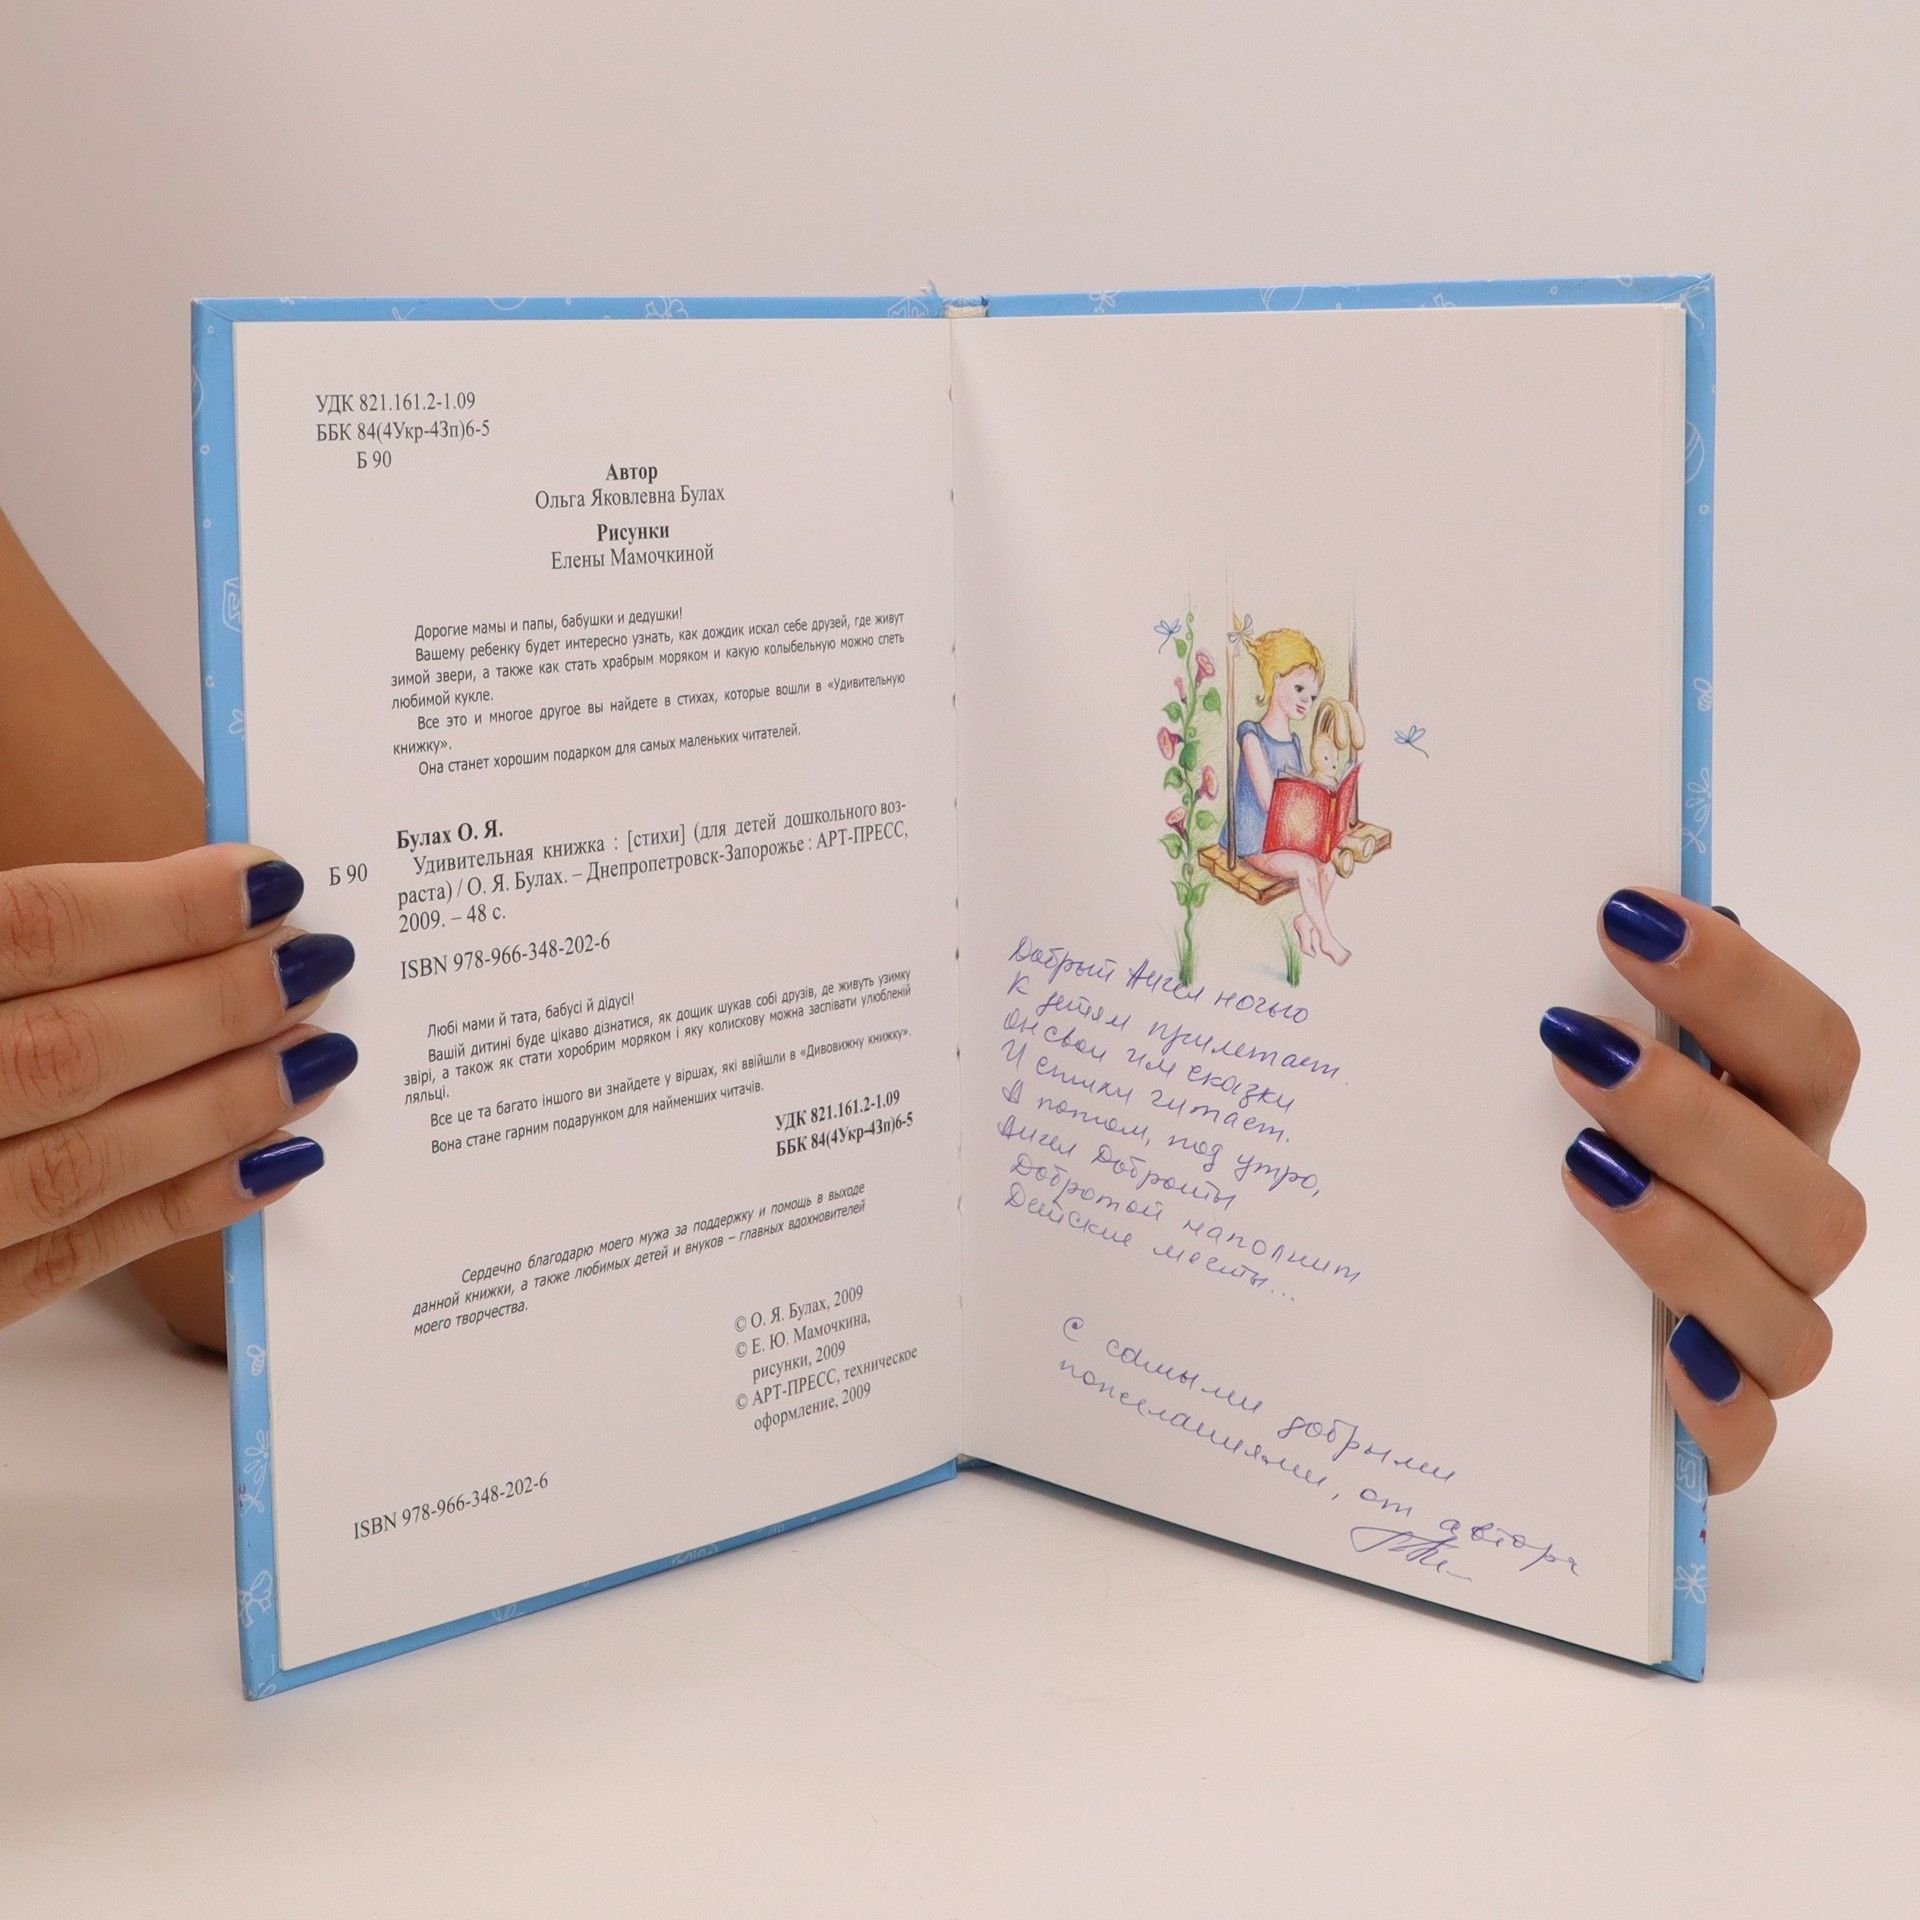 УДК 821.161.2-1.09
ББК 84(4Укр-4Зп)6-5
Б 90
Автор
Ольга Яковлевна Булах
Рисунки
Елены Мамочкиной
Дорогие мамы и папы, бабушки и дедушки!
Вашему ребенку будет интересно узнать, как дождик искал себе друзей, где живут
зимой звери, а также как стать храбрым моряком и какую колыбельную можно спеть
любимой кукле.
Все это и многое другое вы найдете в стихах, которые вошли в «Удивительную
книжку».
Она станет хорошим подарком для самых маленьких читателей.
Булах О. Я.
Б 90 Удивительная книжка : [стихи] (для детей дошкольного воз-
раста) / О. Я. Булах. – Днепропетровск-Запорожье : АРТ-ПРЕСС,
2009. – 48 с.
ISBN 978-966-348-202-6
Любі мами й тата, бабусі й дідусі!
Вашій дитині буде цікаво дізнатися, як дощик шукав собі друзів, де живуть узимку
звірі, а також як стати хоробрим моряком і яку колискову можна заспівати улюбленій
ляльці.
Все це та багато іншого ви знайдете у віршах, які ввійшли в «Дивовижну книжку».
Вона стане гарним подарунком для найменших читачів.
УДК 821.161.2-1.09
ББК 84(4Укр-4Зп)6-5
Сердечно благодарю моего мужа за поддержку и помощь в выходе
данной книжки, а также любимых детей и внуков – главных вдохновителей
моего творчества.
© О. Я. Булах, 2009
© Е. Ю. Мамочкина,
рисунки, 2009
© АРТ-ПРЕСС, техническое
оформление, 2009
ISBN 978-966-348-202-6
Добрый Ангел ночью
К детям прилетает.
Он свои им сказки
И стихи читает.
А потом, под утро,
Ангел Доброты
Добротой наполнит
Детские мечты...
С самыми добрыми
пожеланиями, от автора